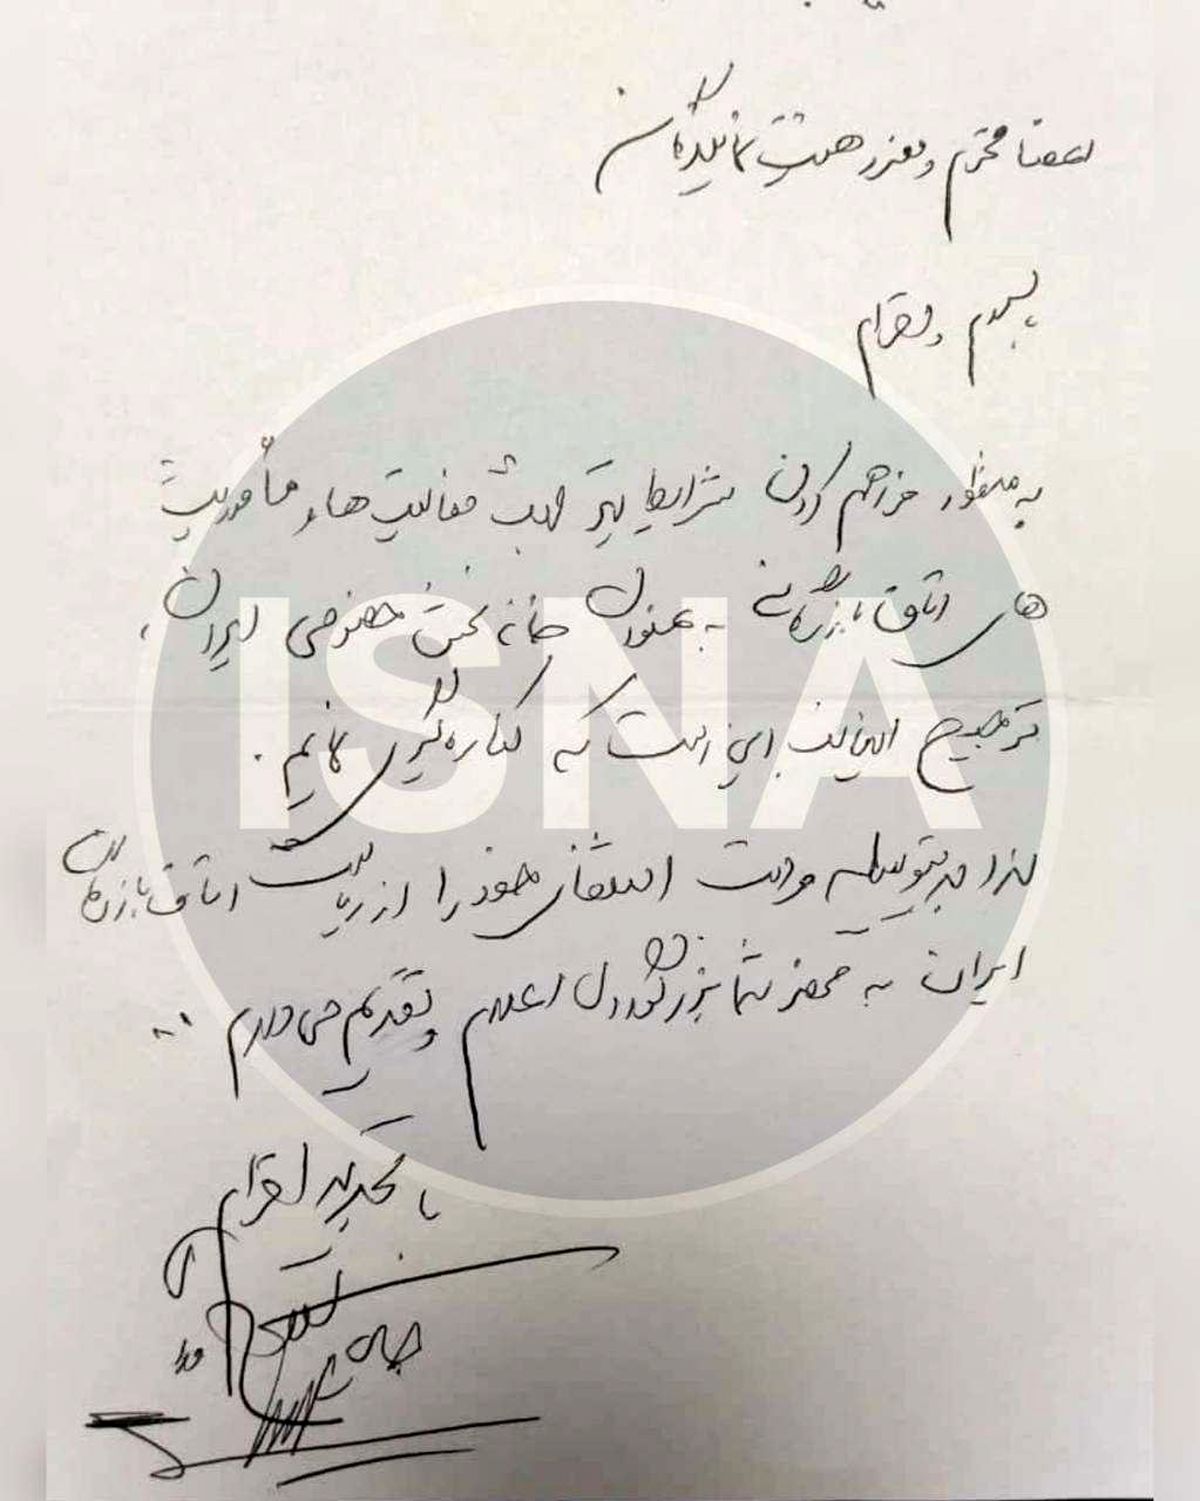 اعضا محترم و معزز هیئت نمایندگان
با سلام و احترام
به منظور فراهم کردن شرایط بهتر جهت فعالیت ها و مأموریت
های اتاق بازرگانی به عنوان خانه بخش خصوصی ایران،
ترجیح اینجانب این است که کناره گیری نمایم.
لذا بدینوسیله مراتب استعفای خود را از ریاست اتاق بازرگانی
ایران به محضر شما بزرگواران اعلام و تقدیم می دارم
با تجدید احترام
ISNA